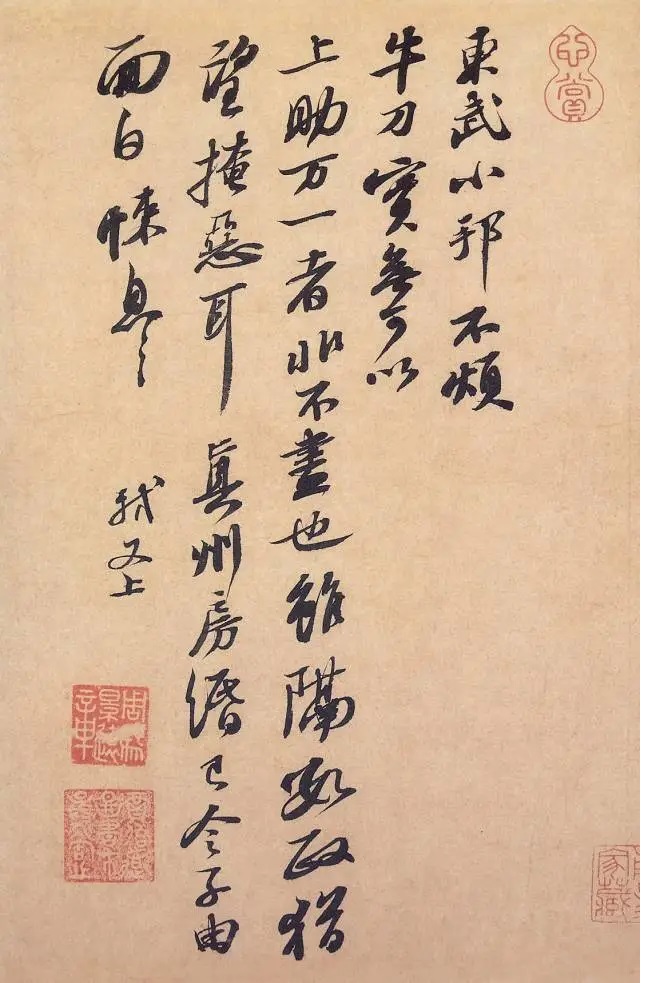 心賞
東武小邦不煩
牛刀實無可以
上助万一者非不盡也雖隔數政猶
望掩惡耳真州房緡已令子由
面白悚息〻
軾又上
家藏